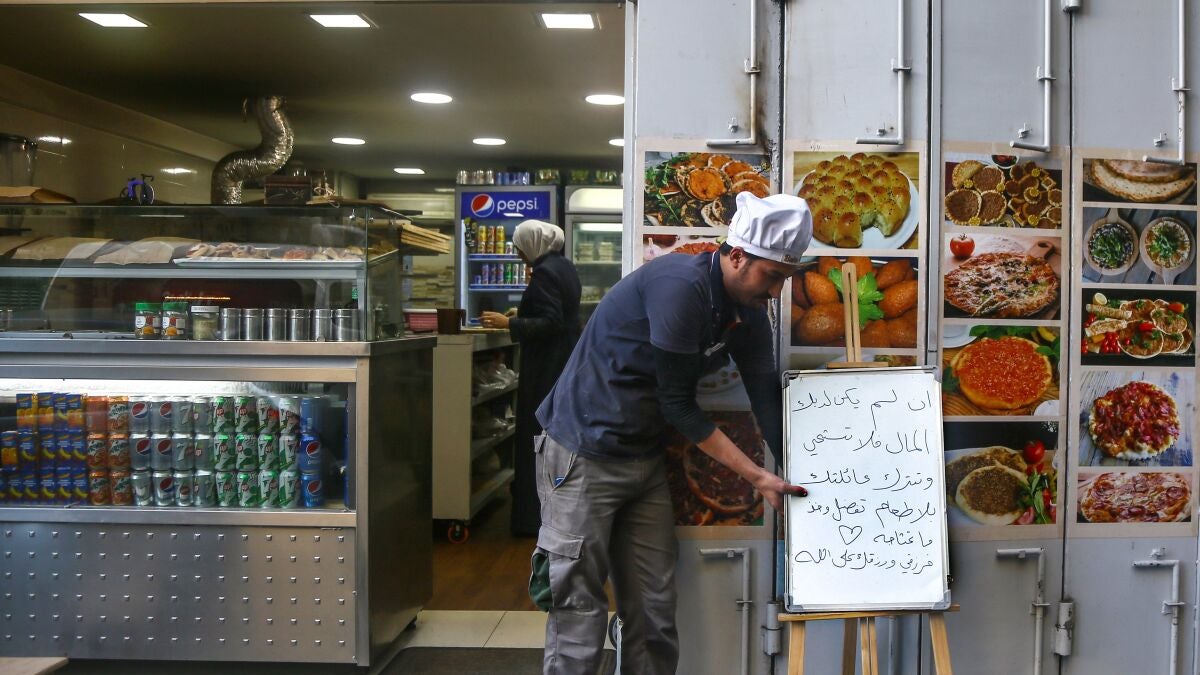 pepsi
ان لم يكن لديك
المال فلا تستحي
وتترك عائلتك
بلا طعام تفضل وخذ
ما تحتاجه
فرزقي ورزقك على الله